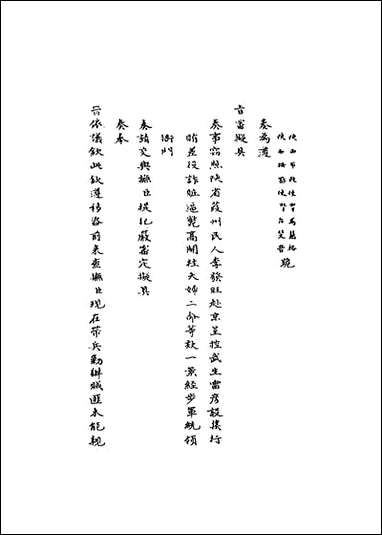 陝西布政使臣馬慧裕
陝西按察使臣台斐音 跪
奏為遵
旨審擬具
奏事竊照陝省葭州民人李發旺赴京呈控武生雷彦設行
賄差役詐贓逼斃高開柱夫婦二命等款一案經步軍統領
衙門
奏請交與撫臣提犯嚴審定擬具
奏奉
旨依議欽此欽遵移咨前來查撫臣現在帶兵勦辦賊匪未能親